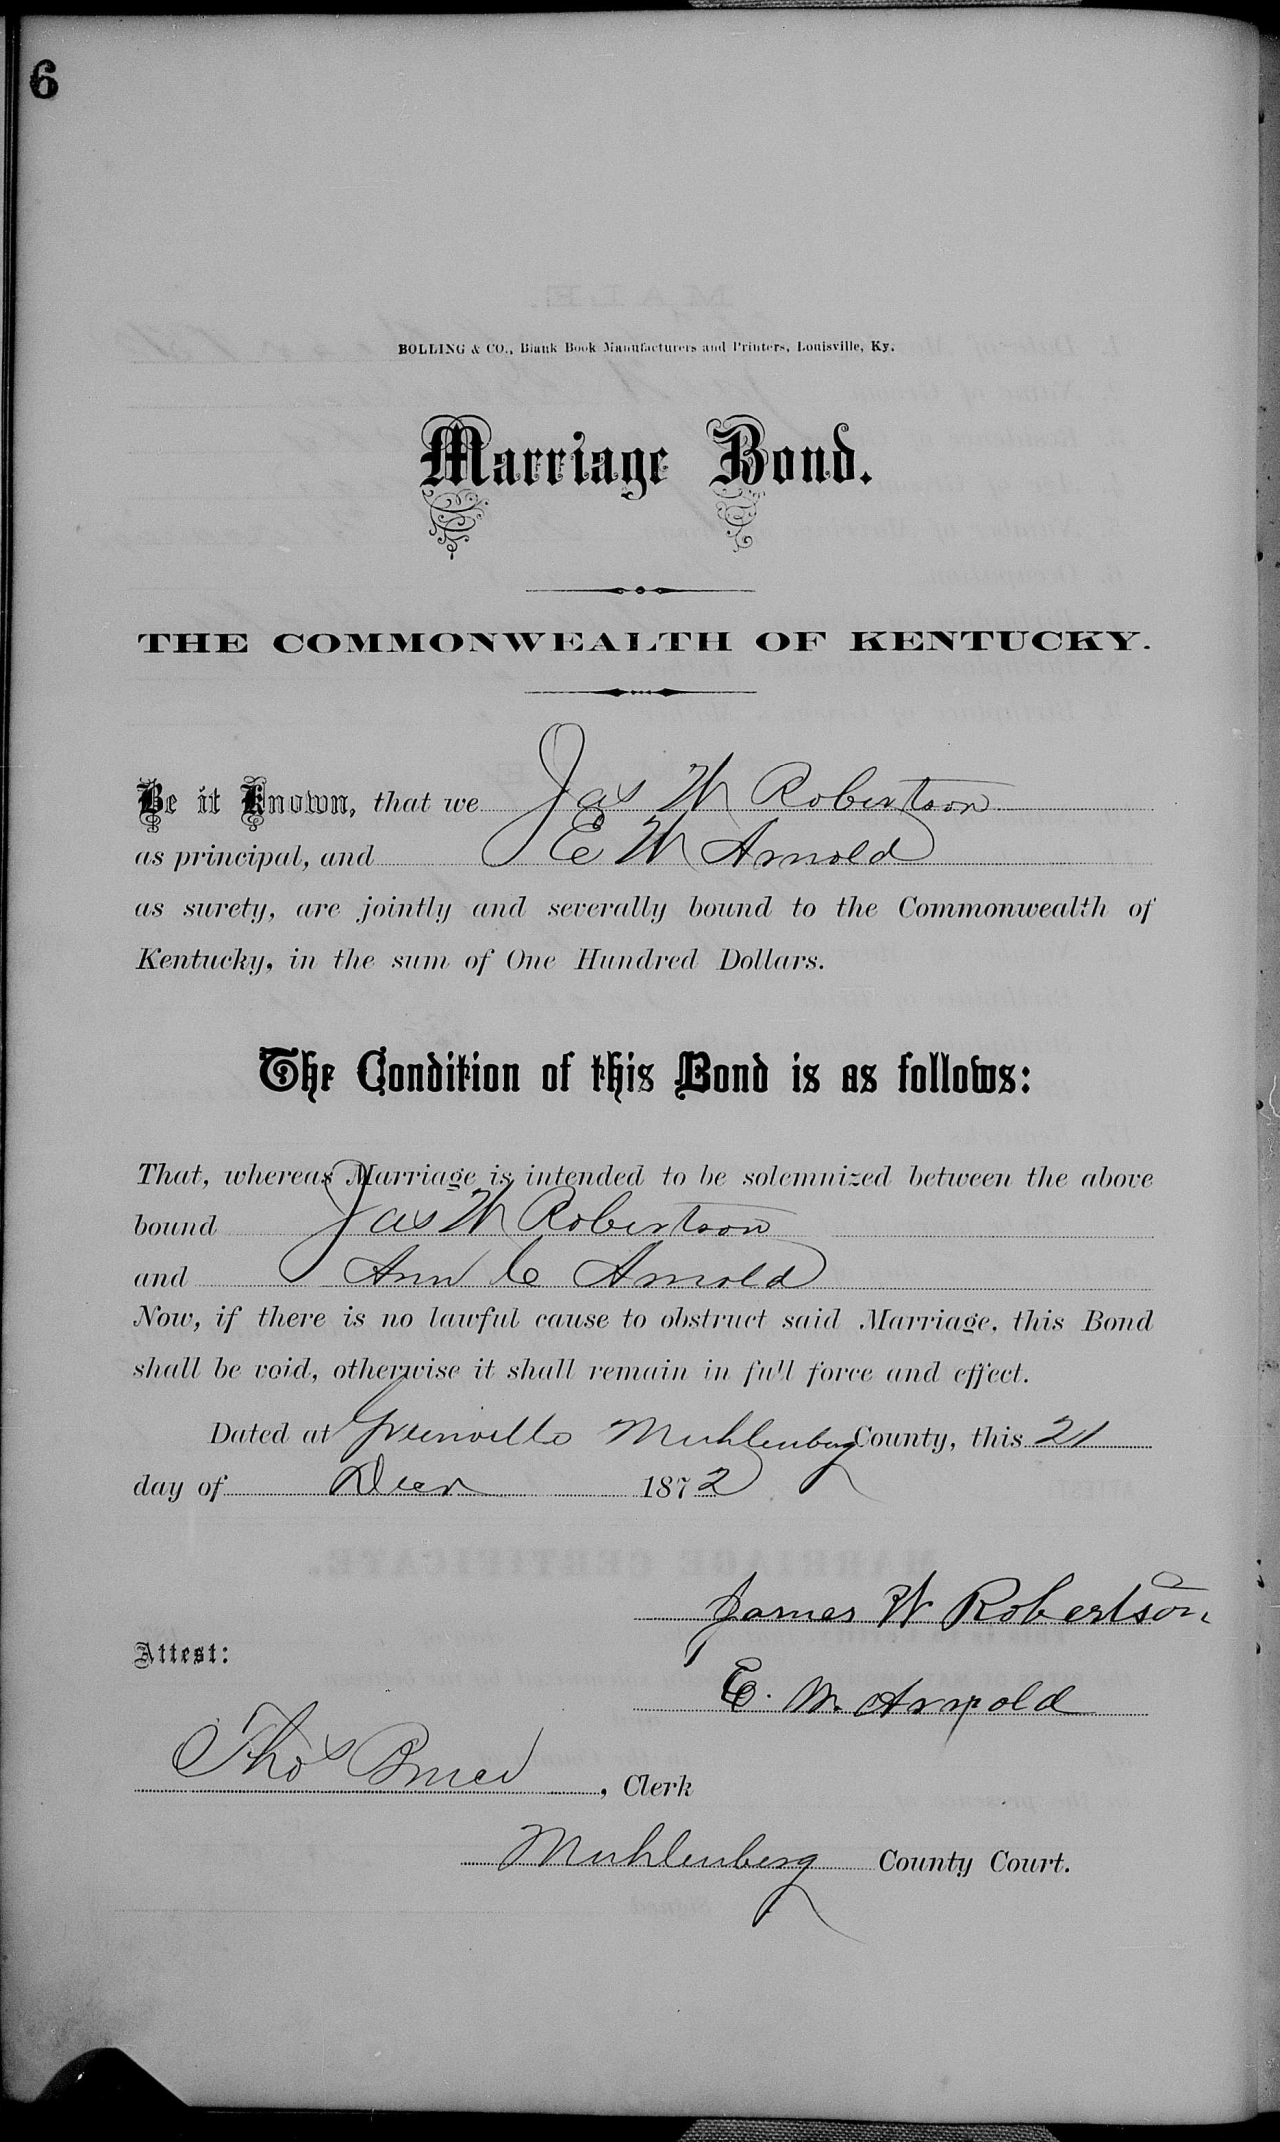 6
BOLLING & CO., Blank Book Manufacturers and Printers, Louisville, Ky.
Marriage Bond.
THE COMMONWEALTH OF KENTUCKY.
Be it Known, that we Jas W Robertson
as principal, and E W Arnold
as surety, are jointly and severally bound to the Commonwealth of
Kentucky, in the sum of One Hundred Dollars.
The Condition of this Bond is as follows:
That, whereas Marriage is intended to be solemnized between the above
bound Jas W Robertson
and Ann C Arnold
Now, if there is no lawful cause to obstruct said Marriage, this Bond
shall be void, otherwise it shall remain in full force and effect.
Dated at Greenville Muhlenberg County, this 21
day of Decr 1872
James W Robertson
Attest:
E. M. Arnold
Thos Bruce, Clerk
Muhlenberg County Court.